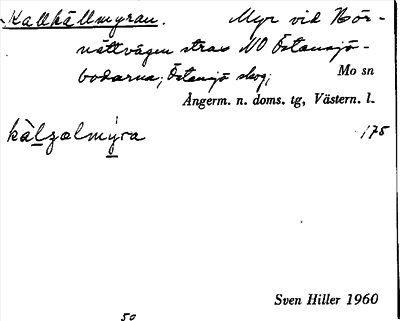 Kallkällmyran. Myr vid Hör-
nättvägen strax NO Östansjö-
bodarna; Östansjö skog;
Mo sn
Ångerm. n. doms. tg, Västern. l.
kàlʒælmýra 175
Sven Hiller 1960
50